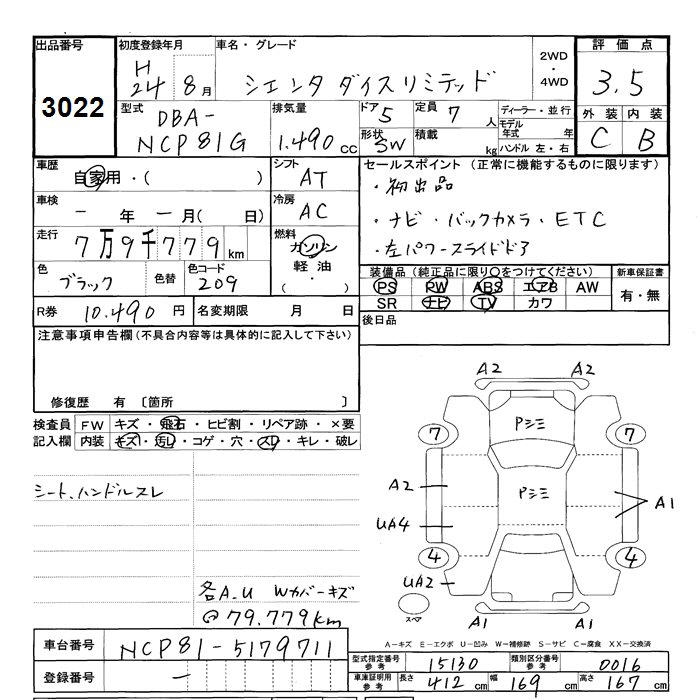 出品番号 3022
初度登録年月 H 24 8月
車名・グレード シエンタ ダイスリミテッド
2WD ・ 4WD
評価点 3.5
外装 C 内装 B
型式 DBA-NCP81G
排気量 1.490 cc
ドア 5 形状 SW
定員 7人 積載 kg
ディーラー・並行
モデル年式 年
ハンドル 左・右
車歴 自家用・( )
シフト AT
セールスポイント (正常に機能するものに限ります)
・初出品
・ナビ・バックカメラ・ETC
・左パワースライドドア
車検 - 年 - 月( 日)
冷房 AC
走行 7万9千779km
燃料 ガソリン 軽油 ( ・ )
色 ブラック 色替 色コード 209
装備品 (純正品に限り○をつけてください) 新車保証書
PS PW ABS エアB AW 有・無
SR ナビ TV カワ
R券 10.490 円 名変期限 月 日
後日品
注意事項申告欄 (不具合内容等は具体的に記入して下さい)
修復歴 有 〔箇所 〕
検査員記入欄 FW キズ・飛石・ヒビ割・リペア跡・×要
内装 キズ・汚レ・コゲ・穴・スレ・キレ・破レ
シート、ハンドルスレ
各A.U Wカバーキズ
@79.779km
A2 A2
Pシミ
7 7
Pシミ
A2
A1
UA4
4 4
UA2
スペア
A1 A1
A-キズ E-エクボ U-凹み W-補修跡 S-サビ C-腐食 XX-交換済
車台番号 NCP81-5179711
登録番号 -
型式指定番号 参考 15130 類別区分番号 参考 0016
車庫証明用 参考 長さ 412 cm 幅 169 cm 高さ 167 cm